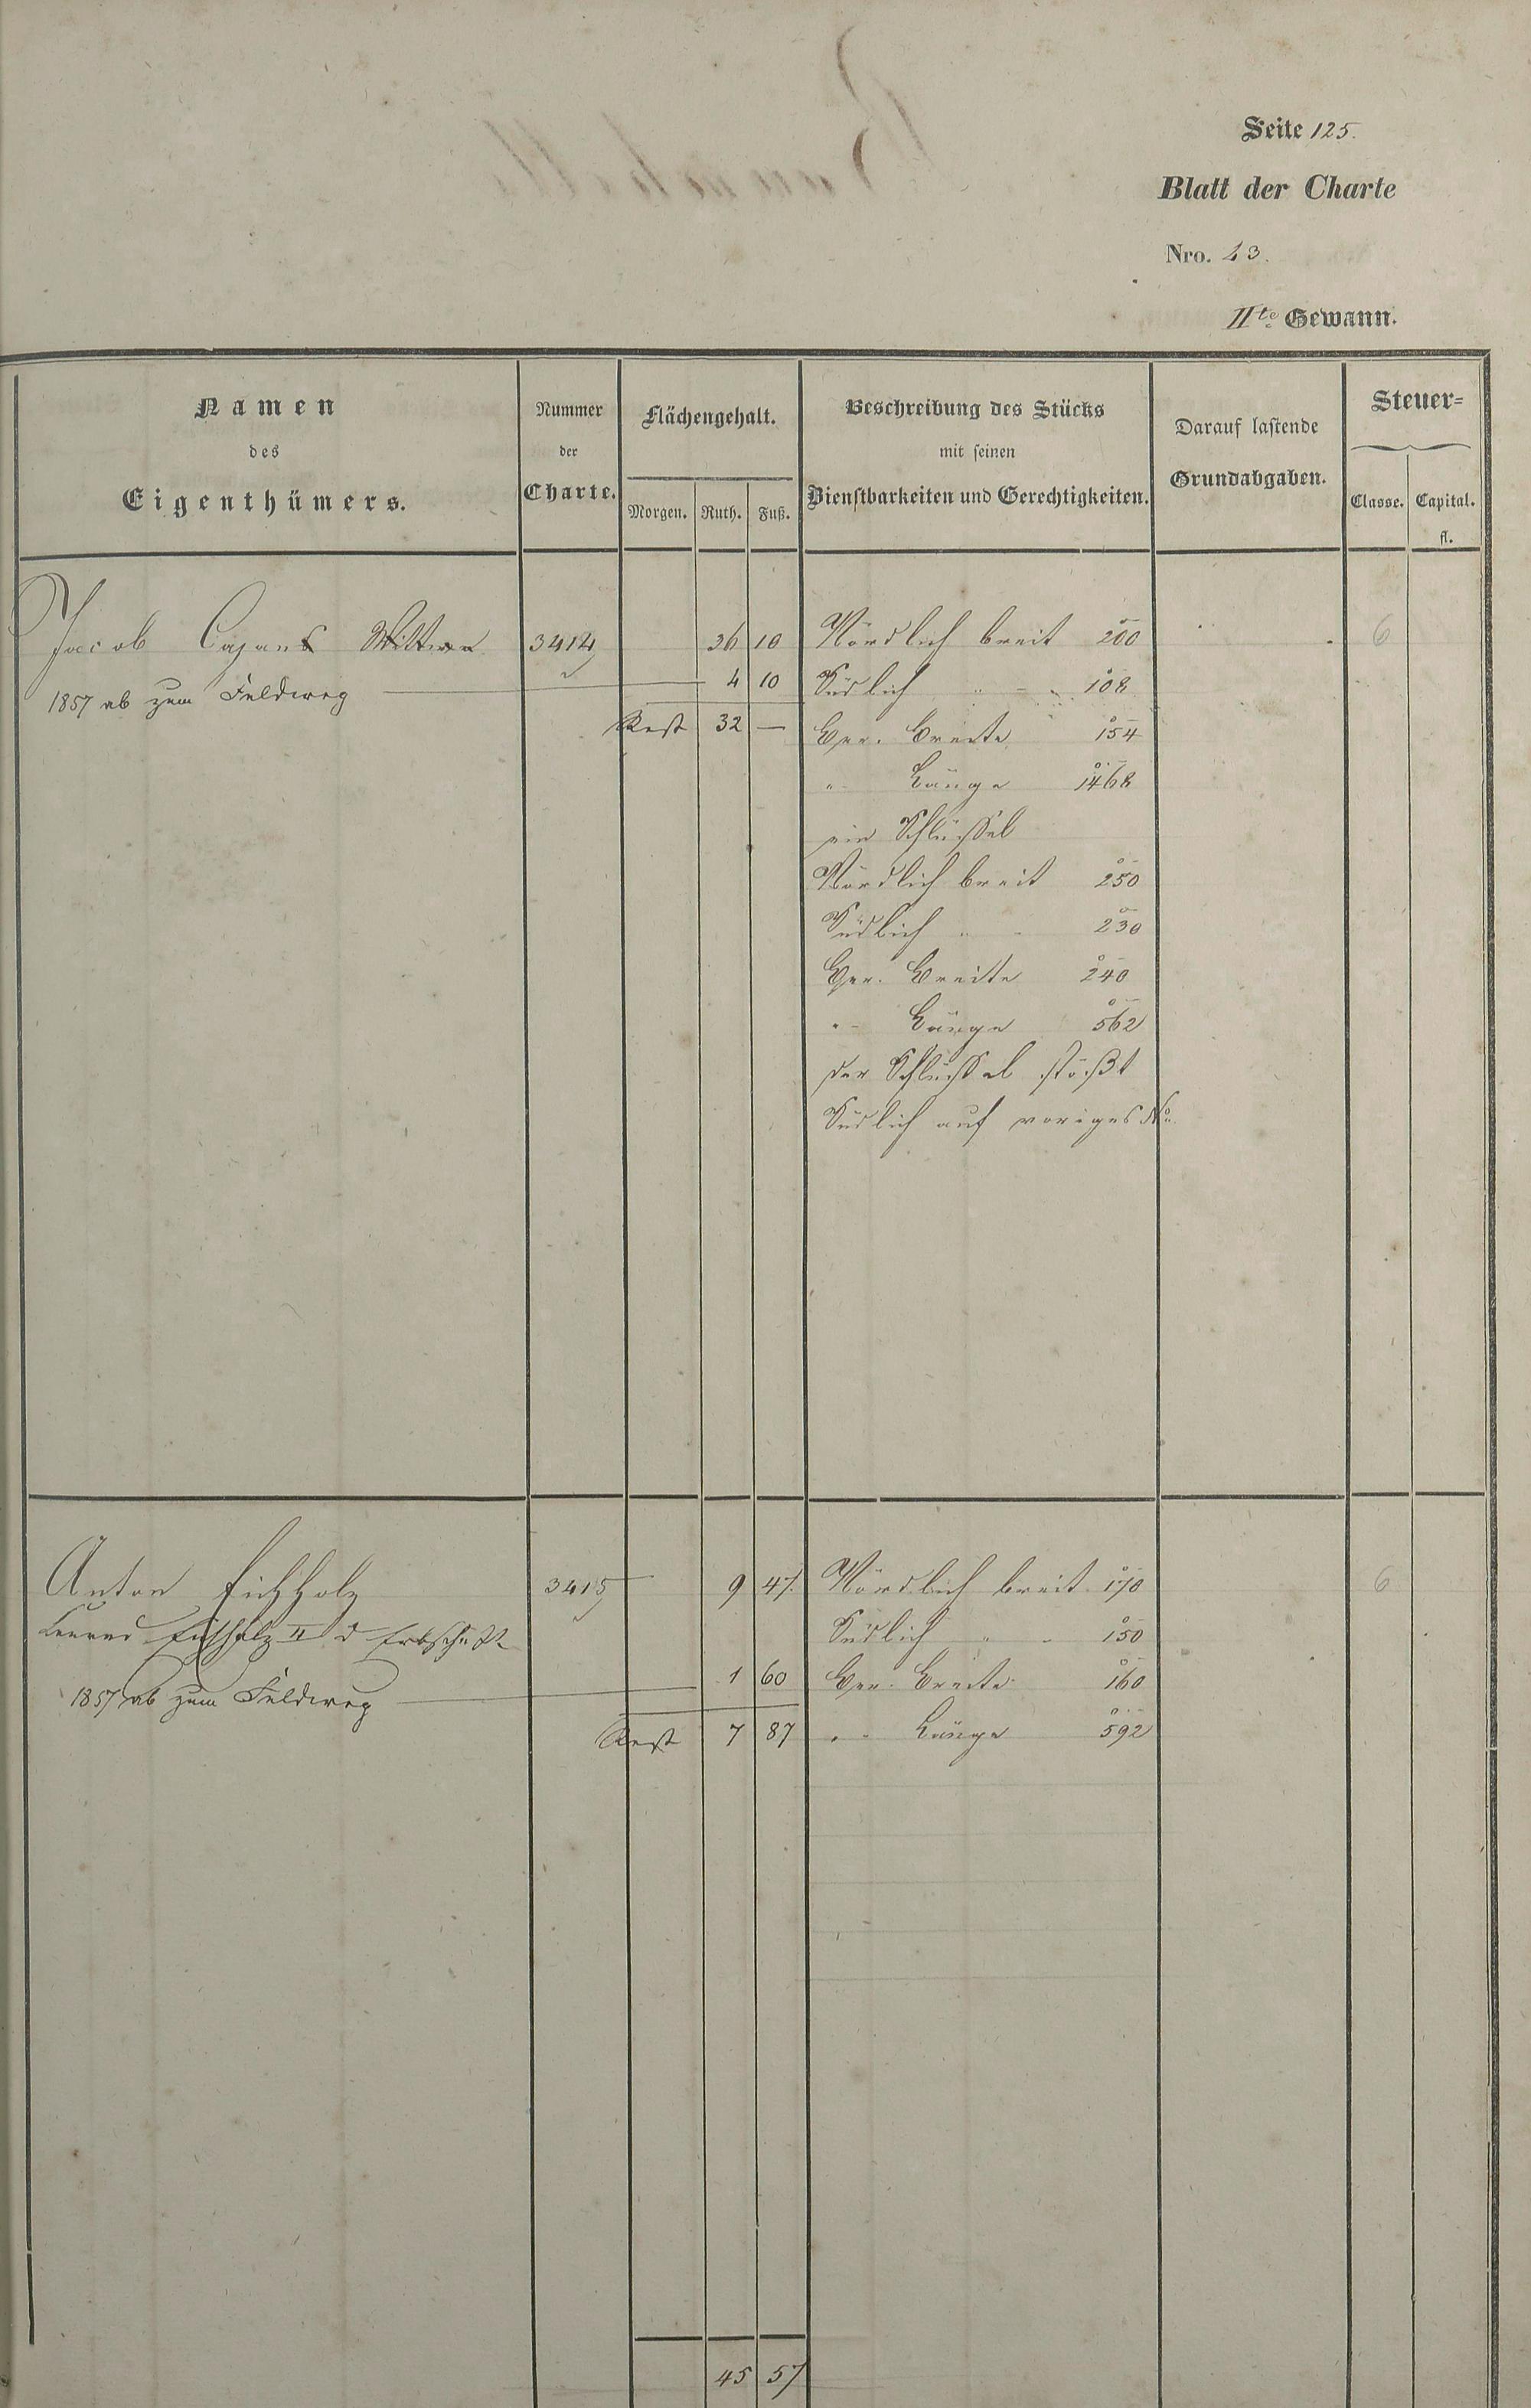 Seite 125.
Blatt der Charte
Nro. 23.
IIte Gewann.
Namen des Eigenthümers.
Nummer der Charte.
Flächengehalt.
Morgen. Ruth. Fuß.
Beschreibung des Stücks mit seinen Dienstbarkeiten und Gerechtigkeiten.
Darauf lastende Grundabgaben.
Steuer=
Classe. Capital.
fl.
Jacob Cajans Wittwe 3414 36 10 Nördlich breit 200 6
1857 ab zum Feldweg 4 10 Südlich " 108
Rest 32 — Ger. Breite 154
" Länge 1468
ein Schlüssel
Nördlich breit 250
Südlich " 230
Ger. Breite 240
" Länge 562
der Schlüssel stößt
Südlich auf voriges No.
Anton Eichholz 3415 9 47. Nördlich breit 170 6
Eichholz II d Erbschaft Südlich " 150
1857 ab zum Feldweg 1 60 Ger. Breite 160
Rest 7 87 " Länge 592
45 57